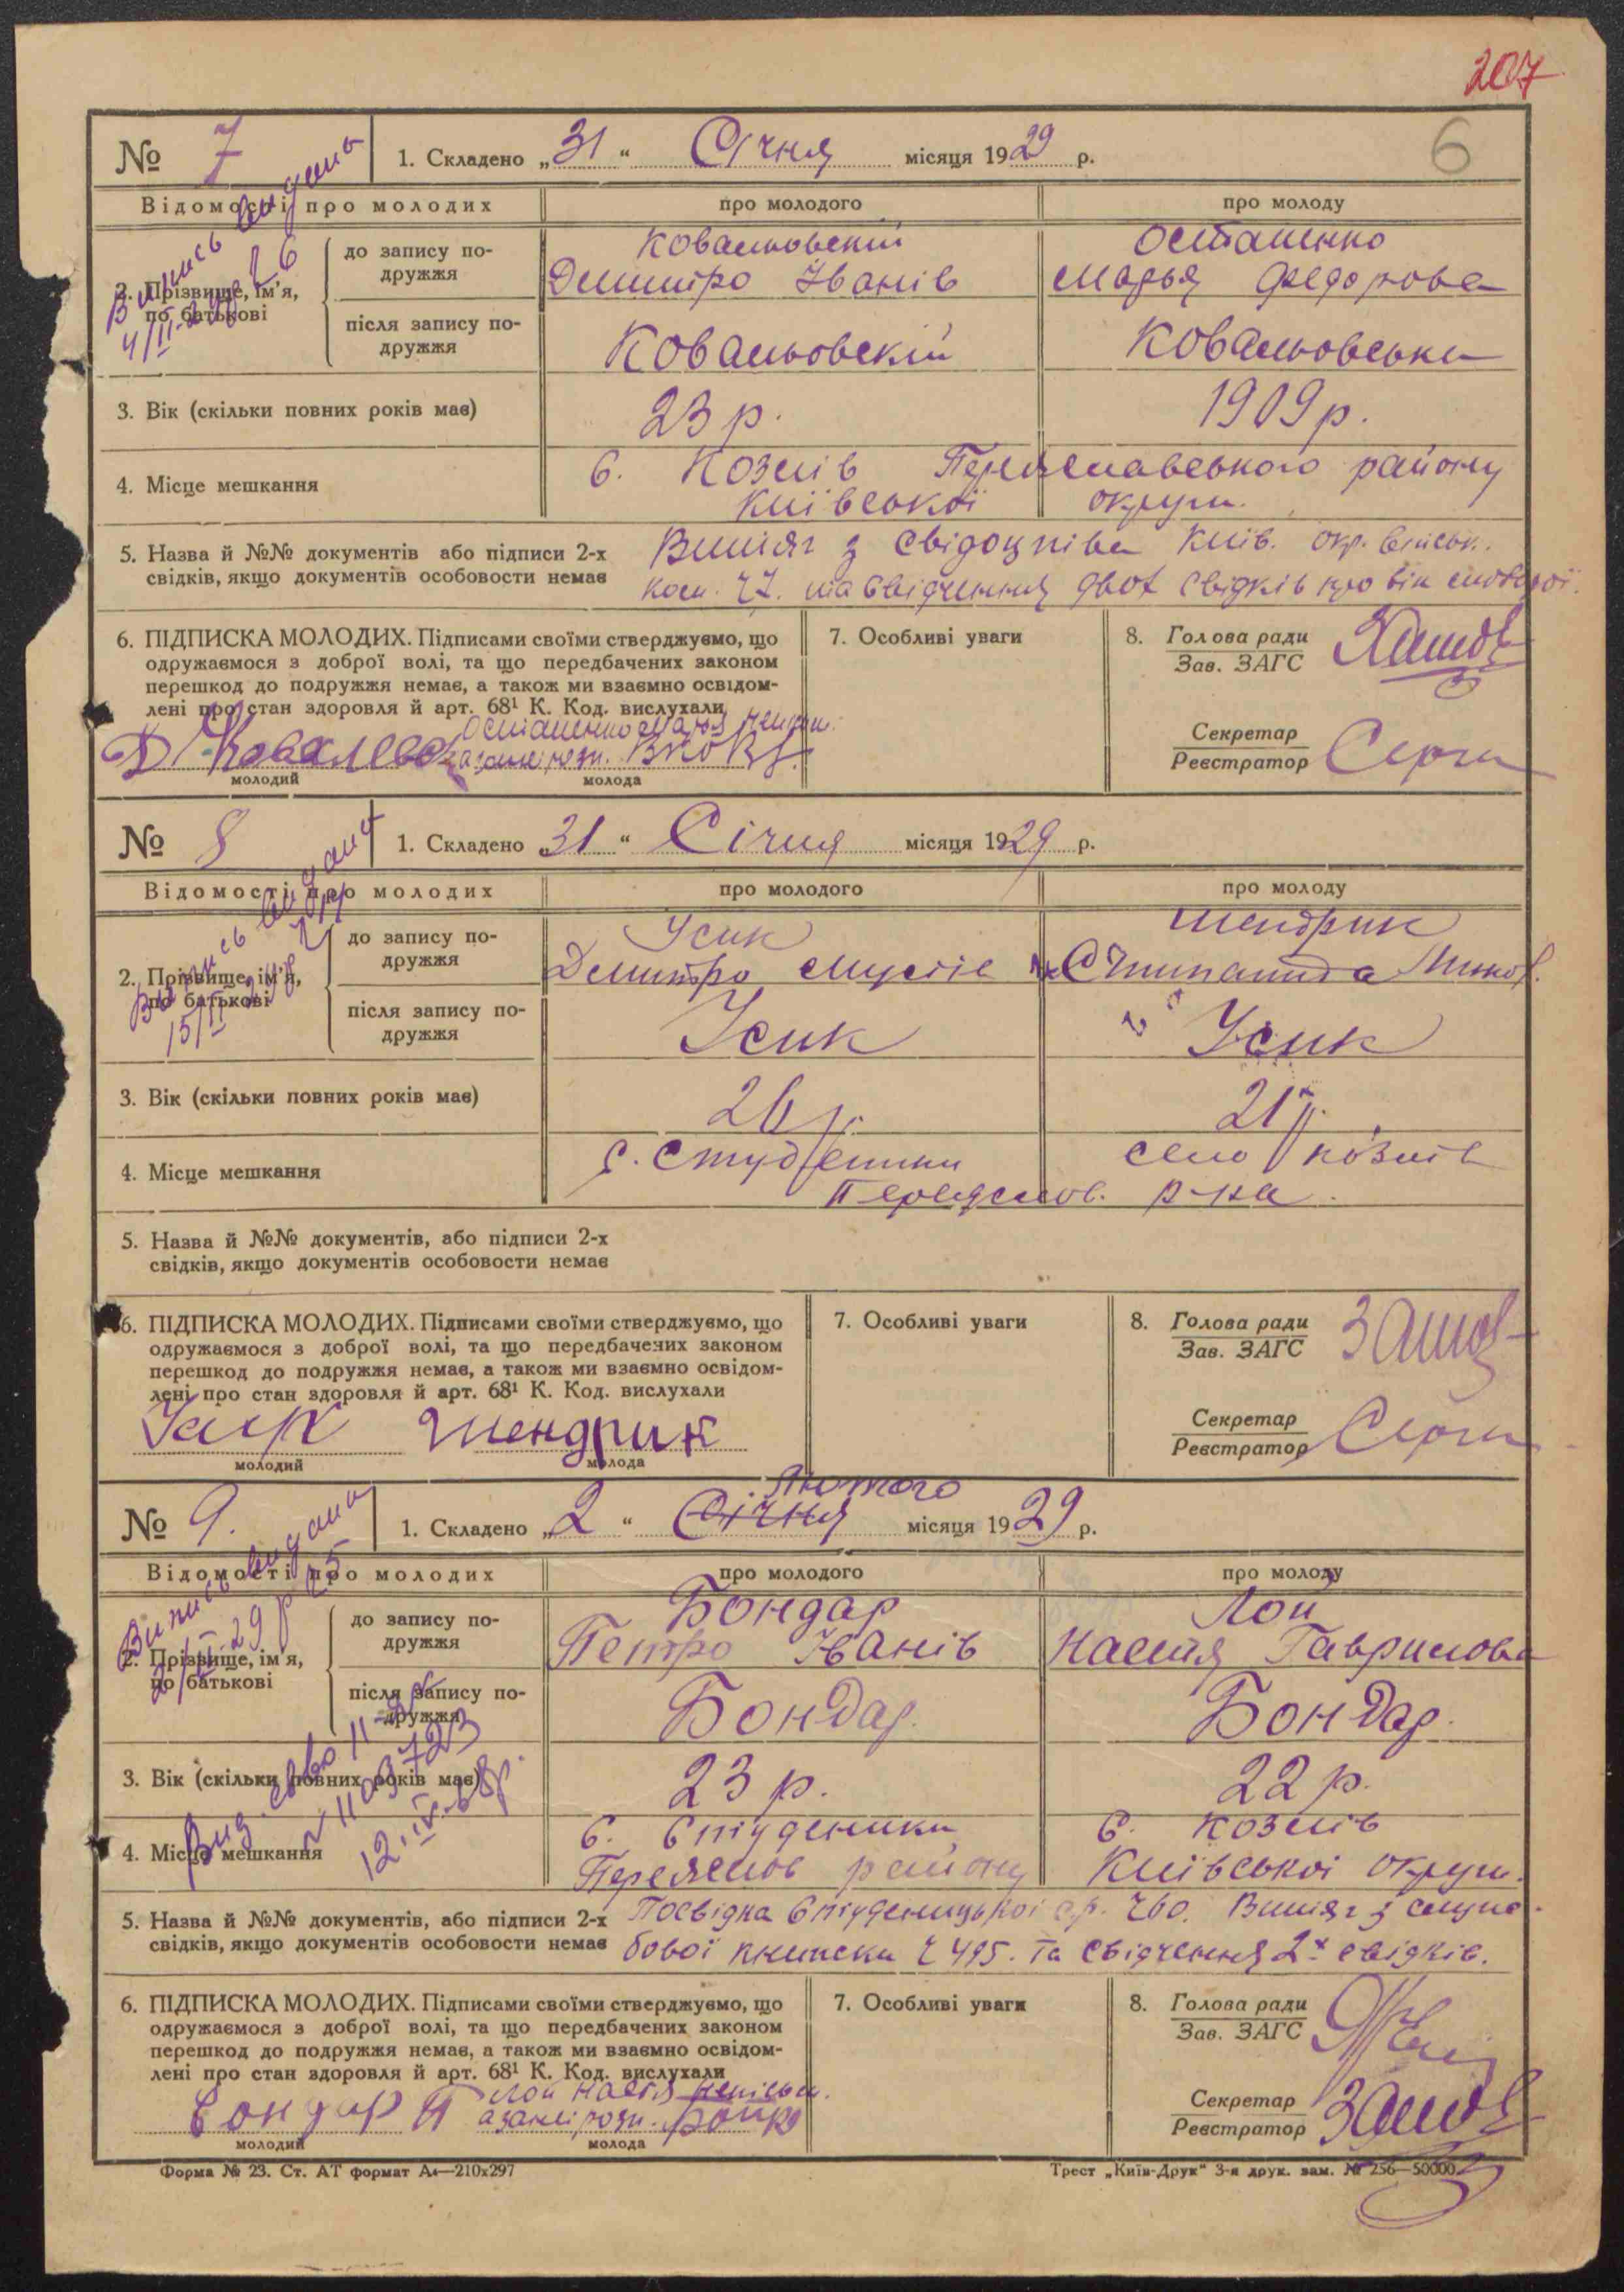 207
6
№ 7 1. Складено „31“ Січня місяця 1929 р.
Відомості про молодих про молодого про молоду
Випись видана
4/II-29р. 26
2. Прізвище, ім'я, по батькові
до запису подружжя
Ковальовскій Остапенко
Дмитро Іванів Марья Федорова
після запису подружжя
Ковальовскій Ковальовська
3. Вік (скільки повних років має) 23 р. 1909 р.
4. Місце мешкання
с. Козлів Переяславського району
Київської округи.
5. Назва й №№ документів або підписи 2-х
свідків, якщо документів особовости немає
Витяг з Київ. окр. військ.
ком. та свідчення двох свідків про вік
6. ПІДПИСКА МОЛОДИХ. Підписами своїми стверджуємо, що
одружаємося з доброї волі, та що передбачених законом
перешкод до подружжя немає, а також ми взаємно освідом-
лені про стан здоровля й арт. 68¹ К. Код. вислухали
Остапенко
молодий молода
7. Особливі уваги
8. Голова ради
Зав. ЗАГС
Секретар
Реєстратор
№ 8 1. Складено „31“ Січня місяця 1929 р.
Відомості про молодих про молодого про молоду
Випись видана
2. Прізвище, ім'я, по батькові
до запису подружжя
Усик Шендрик
Дмитро
після запису подружжя
Усик Усик
3. Вік (скільки повних років має) 26 р. 21 р.
4. Місце мешкання
с. Студеники село Козлів
Переяслов. р-на.
5. Назва й №№ документів, або підписи 2-х
свідків, якщо документів особовости немає
6. ПІДПИСКА МОЛОДИХ. Підписами своїми стверджуємо, що
одружаємося з доброї волі, та що передбачених законом
перешкод до подружжя немає, а також ми взаємно освідом-
лені про стан здоровля й арт. 68¹ К. Код. вислухали
Усик Шендрик
молодий молода
7. Особливі уваги
8. Голова ради
Зав. ЗАГС
Секретар
Реєстратор
Лютого
№ 9. 1. Складено „2“ Січня місяця 1929 р.
Відомості про молодих про молодого про молоду
Випись видана
2/II-29 р 25
2. Прізвище, ім'я, по батькові
до запису подружжя
Бондар Лой
Петро Іванів Настя Гаврилова
після запису подружжя
Бондар. Бондар.
3. Вік (скільки повних років має) 23 р. 22 р.
Вид. св-во II-
12.IV.68р.
4. Місце мешкання
с. Студеники с. Козлів
Переяслов району Київської округи.
5. Назва й №№ документів, або підписи 2-х
свідків, якщо документів особовости немає
Посвідка Студеницької с.р. Витяг з
бової книжки ч 495. та свідчення 2х свідків.
6. ПІДПИСКА МОЛОДИХ. Підписами своїми стверджуємо, що
одружаємося з доброї волі, та що передбачених законом
перешкод до подружжя немає, а також ми взаємно освідом-
лені про стан здоровля й арт. 68¹ К. Код. вислухали
Лой Настя неписьм.
Бондар П а за неї розп.
молодий молода
7. Особливі уваги
8. Голова ради
Зав. ЗАГС
Секретар
Реєстратор
Форма № 23. Ст. АТ формат А4—210х297
Трест „Київ-Друк“ 3-я друк. зам. № 256—50000